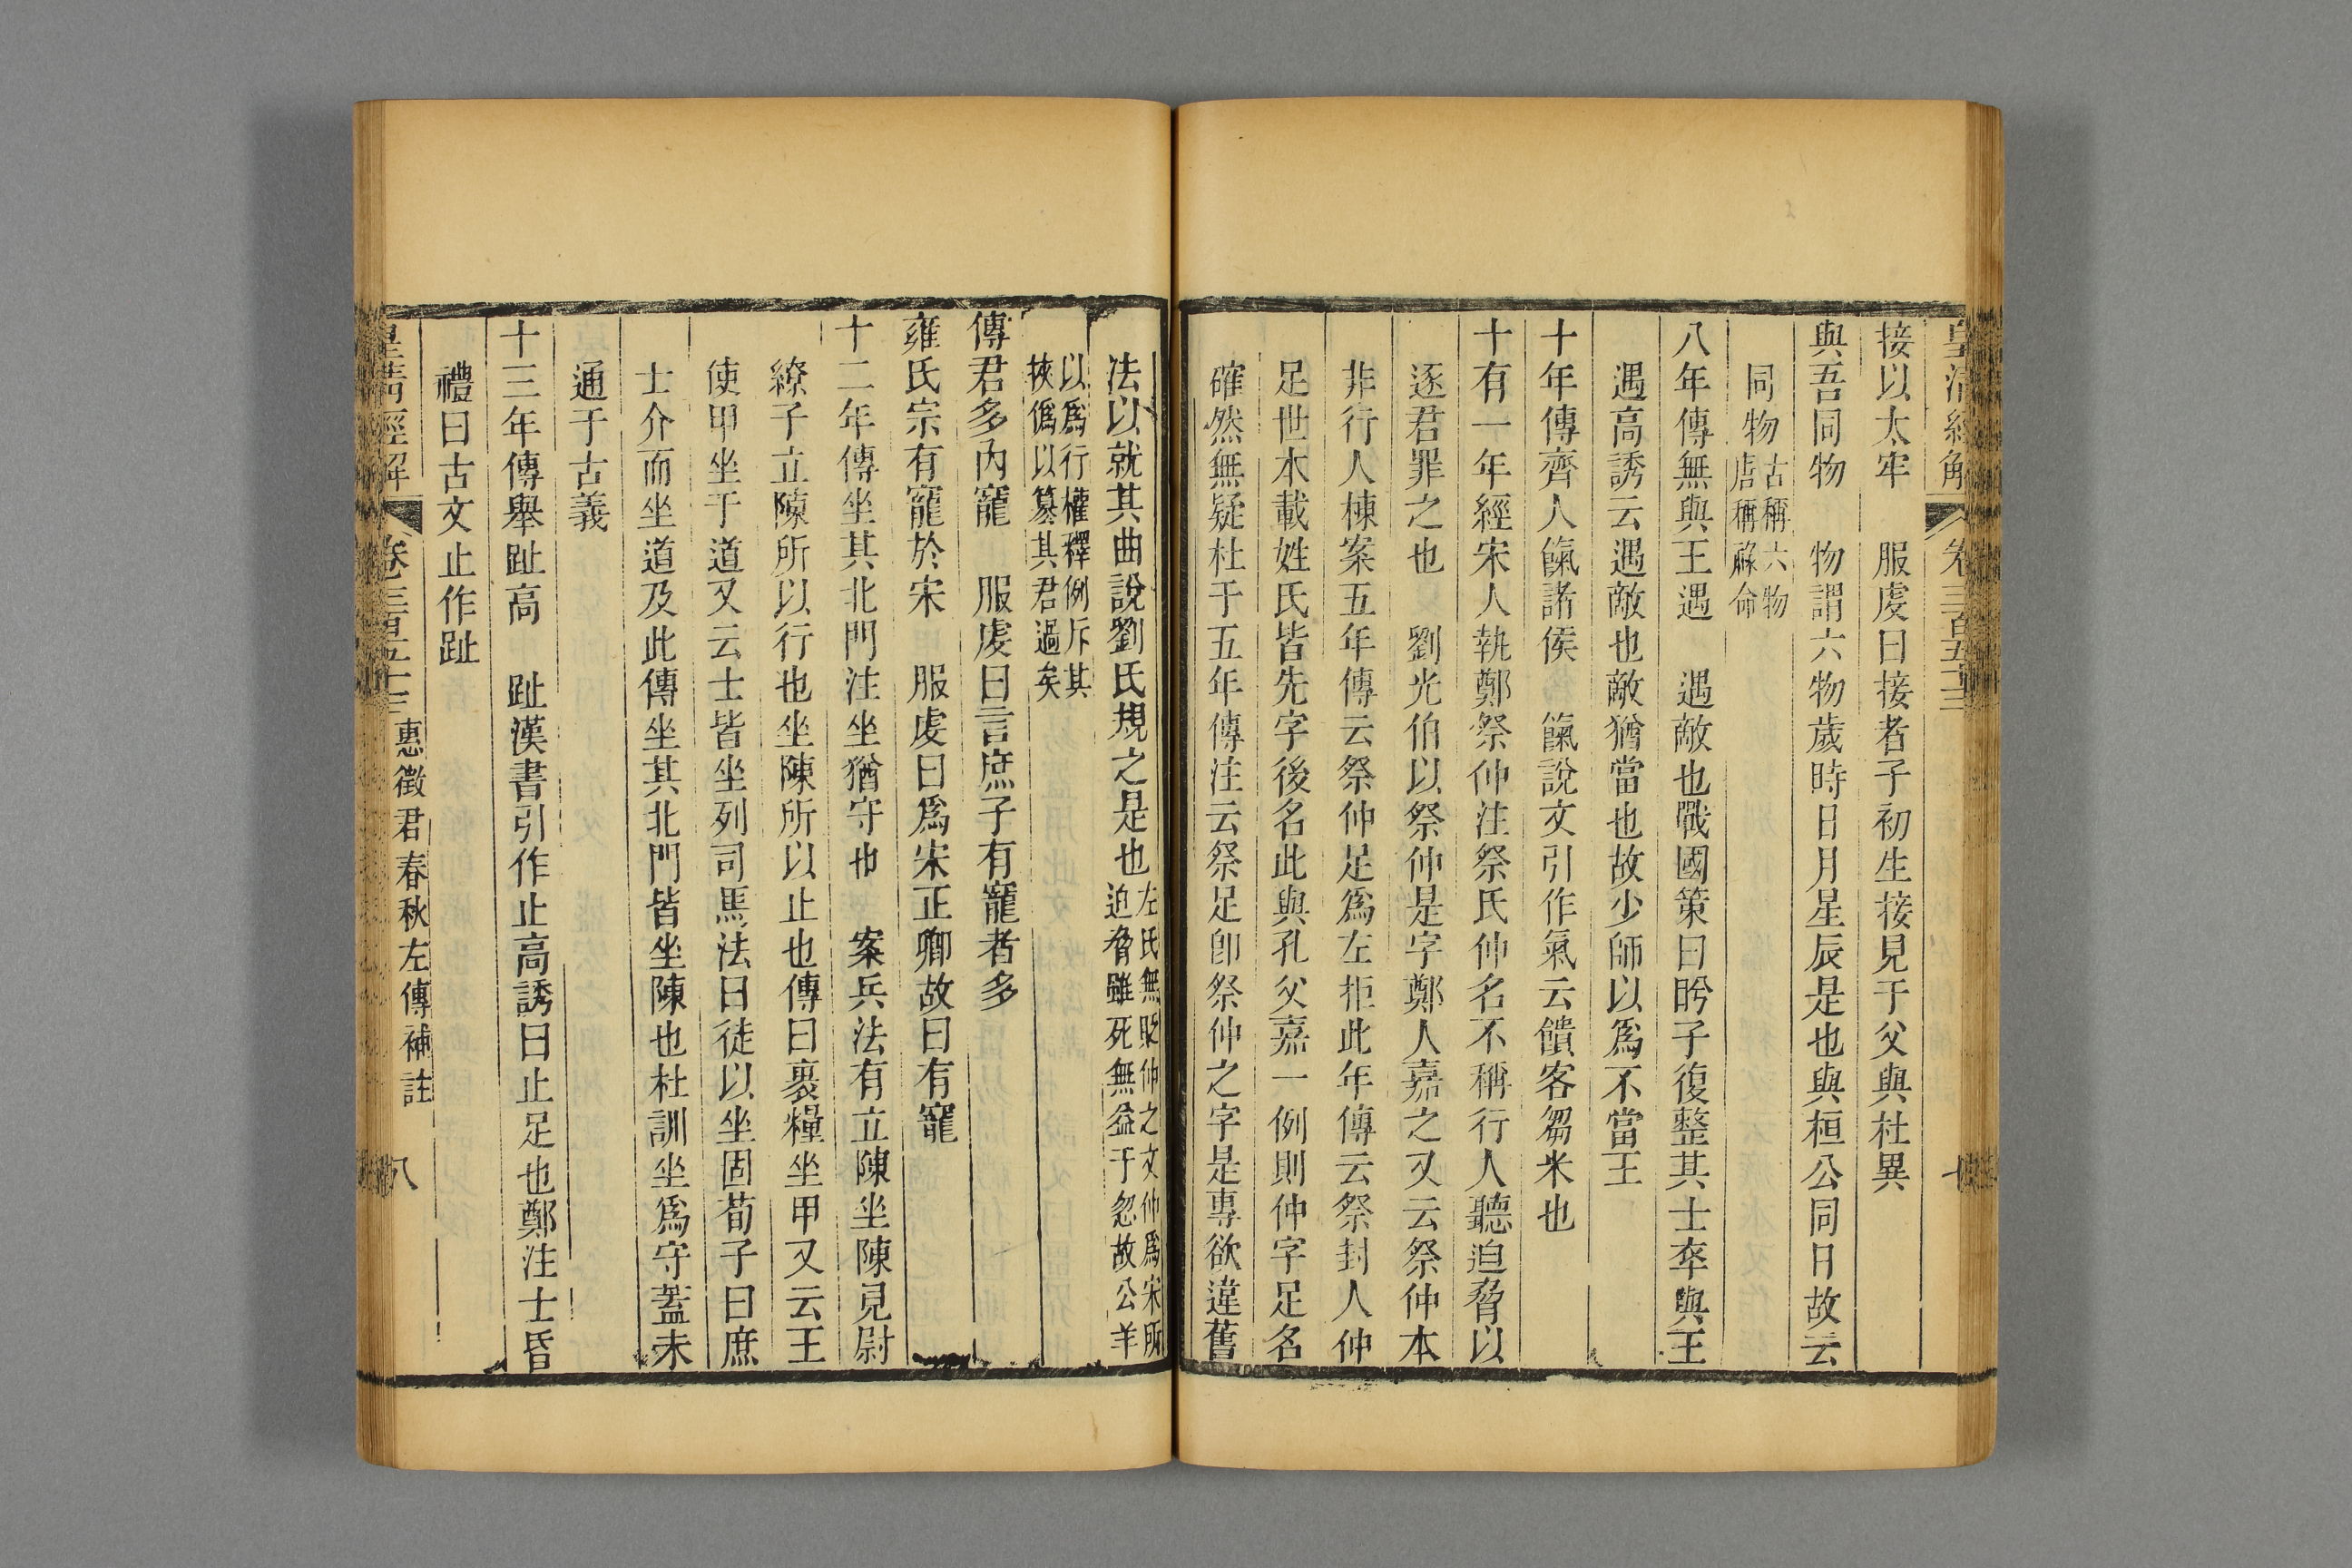 皇清經解 卷三百五十三 七
接以太牢 服虔曰接者子初生接見于父與杜異
與吾同物 物謂六物歲時日月星辰是也與桓公同日故云
同物古稱六物唐稱祿命
八年傳無與王遇 遇敵也戰國策曰昐子復整其士卒與王
遇高誘云遇敵也敵猶當也故少師以爲不當王
十年傳齊人餼諸侯 餼說文引作氣云饋客芻米也
十有一年經宋人執鄭祭仲注祭氏仲名不稱行人聽迫脅以
逐君罪之也 劉光伯以祭仲是字鄭人嘉之又云祭仲本
非行人棟案五年傳云祭仲足爲左拒此年傳云祭封人仲
足世本載姓氏皆先字後名此與孔父嘉一例則仲字足名
確然無疑杜于五年傳注云祭足卽祭仲之字是專欲違舊
法以就其曲說劉氏規之是也左氏無貶仲之文仲爲宋所迫脅雖死無益于忽故公羊
以爲行權釋例斥其挾僞以篡其君過矣
傳君多內寵 服虔曰言庶子有寵者多
雍氏宗有寵於宋 服虔曰爲宋正卿故曰有寵
十二年傳坐其北門注坐猶守也 案兵法有立陳坐陳見尉
繚子立陳所以行也坐陳所以止也傳曰裹糧坐甲又云王
使甲坐于道又云士皆坐列司馬法曰徒以坐固荀子曰庶
士介而坐道及此傳坐其北門皆坐陳也杜訓坐爲守蓋未
通于古義
十三年傳舉趾高 趾漢書引作止高誘曰止足也鄭注士昏
禮曰古文止作趾
皇清經解 卷三百五十三 惠徵君春秋左傳補註 八